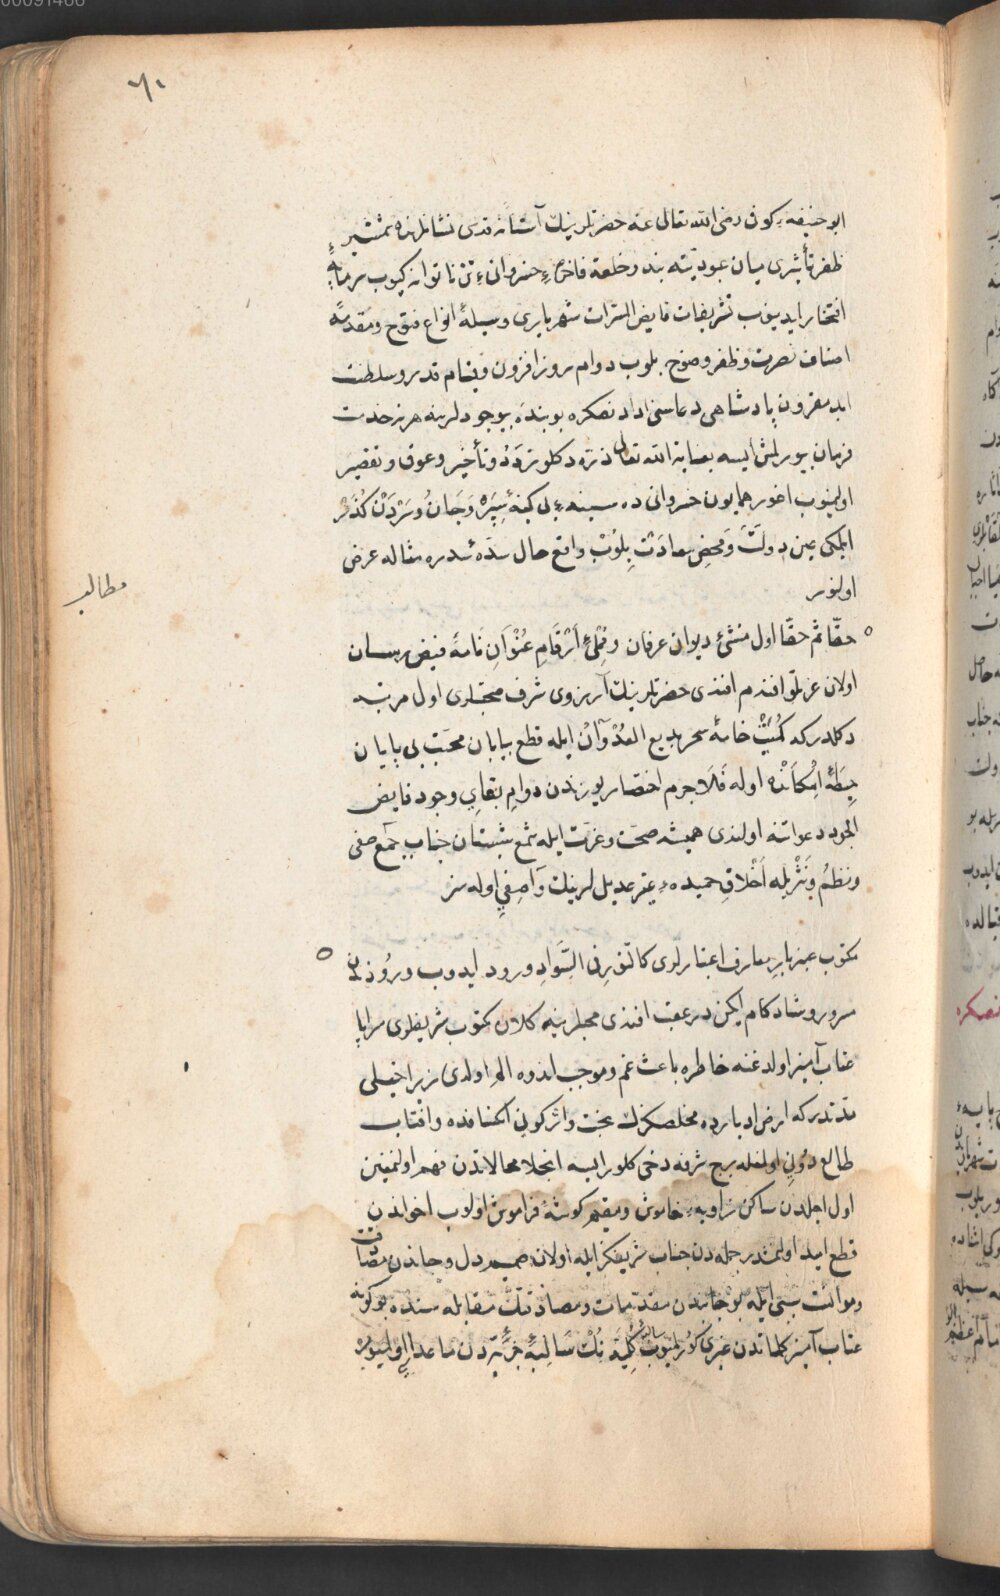 00091466
٦١
ابو حنیفهٔ کوفی رضی الله تعالی عنه حضرتلرینك آستانهٔ قدسی نشانلرنده شمشیر
ظفر تأثیری میان عبودیته بند و خلعة فاخرهٔ خسروانیءِ تن ناتوانه کیوب سرمایهٔ
افتخار ایدینوب تشریفات فایض المسرات شهریاری وسیلهٔ انواع فتوح و مقدمهٔ
اصناف نصرت و ظفر و صنوح بلوب دوام روز افزون و قیام قدر و سلطنت
ابد مقرون پادشاهی دعاسنی ادادنصکره بو بندهٔ بیوجودلرینه هر نه خدمت
فرمان بیورلمش ایسه بعنایة الله تعالی ذره دکلو تردد و تأخیر و عوق و تقصیر
اولنمیوب اغور همایون خسروانی ده سینهءِ بی کینهٔ سپره و جان و سردن کذر
ایلمکی عین دولت و محض سعادت بلوب واقع حال سدهٔ سدره مثاله عرض
اولنور
مطالب
حقّا ثم حقّا اول منشئ دیوان عرفان و مُملئ ارقام عنوان نامهٔ فیض رسان
اولان عزتلو افندم افندی حضرتلرینك آرزوی شرف صحبتلری اول مرتبه
دکلدرکه کمیت خامهٔ سحر بدیع العدوان ایله قطع بیابان محبت بی پایان
حیطهٔ امکانده اوله فلا جرم اختصار یوزندن دوام بقای وجود فایض
الجود دعواتنه اولندی همیشه صحت و عزت ایله شمع شبستان جناب جمع صفی
و نظم و نثریله اخلاق حمیدهءِ بی عدیللرینك و آصفی اوله سز
مکتوب عبیر بار معارف اعتبارلری کالنور فی السواد ورود ایدوب و روزنهٔ
سرور و شادکام ایکن در عقب افندی مجلرینه کلان مکتوب شریفلری سراپا
عتاب آمیز اولدغنه خاطره باعث غم و موجب اندوه الم اولدی زیرا خیلی
مدتدرکه ارض ادبارده مخلصکزك بخت واژکونی انخسافده و افتاب
طالع دونی اولنله برج شرفه دخی کلور ایسه انجلا محالاتدن فهم اولنمغین
اول اجلدن ساکن زاویهءِ خاموش و مقیم کوشهٔ فراموش اولوب اخواندن
قطع امید اولنمشدر جمله دن جناب شریفکز ایله اولان صمیم دل و جاندن مصافت
و موالفت سببی ایله بو جانبدن مقدمات و مصادقتك مقابله سنده بو کونه
عتاب آمیز کلماتدن غیری کورلمیوب سالبهٔ کلیه نك سالبهٔ جزئیه دن ماعداسی اولمیور